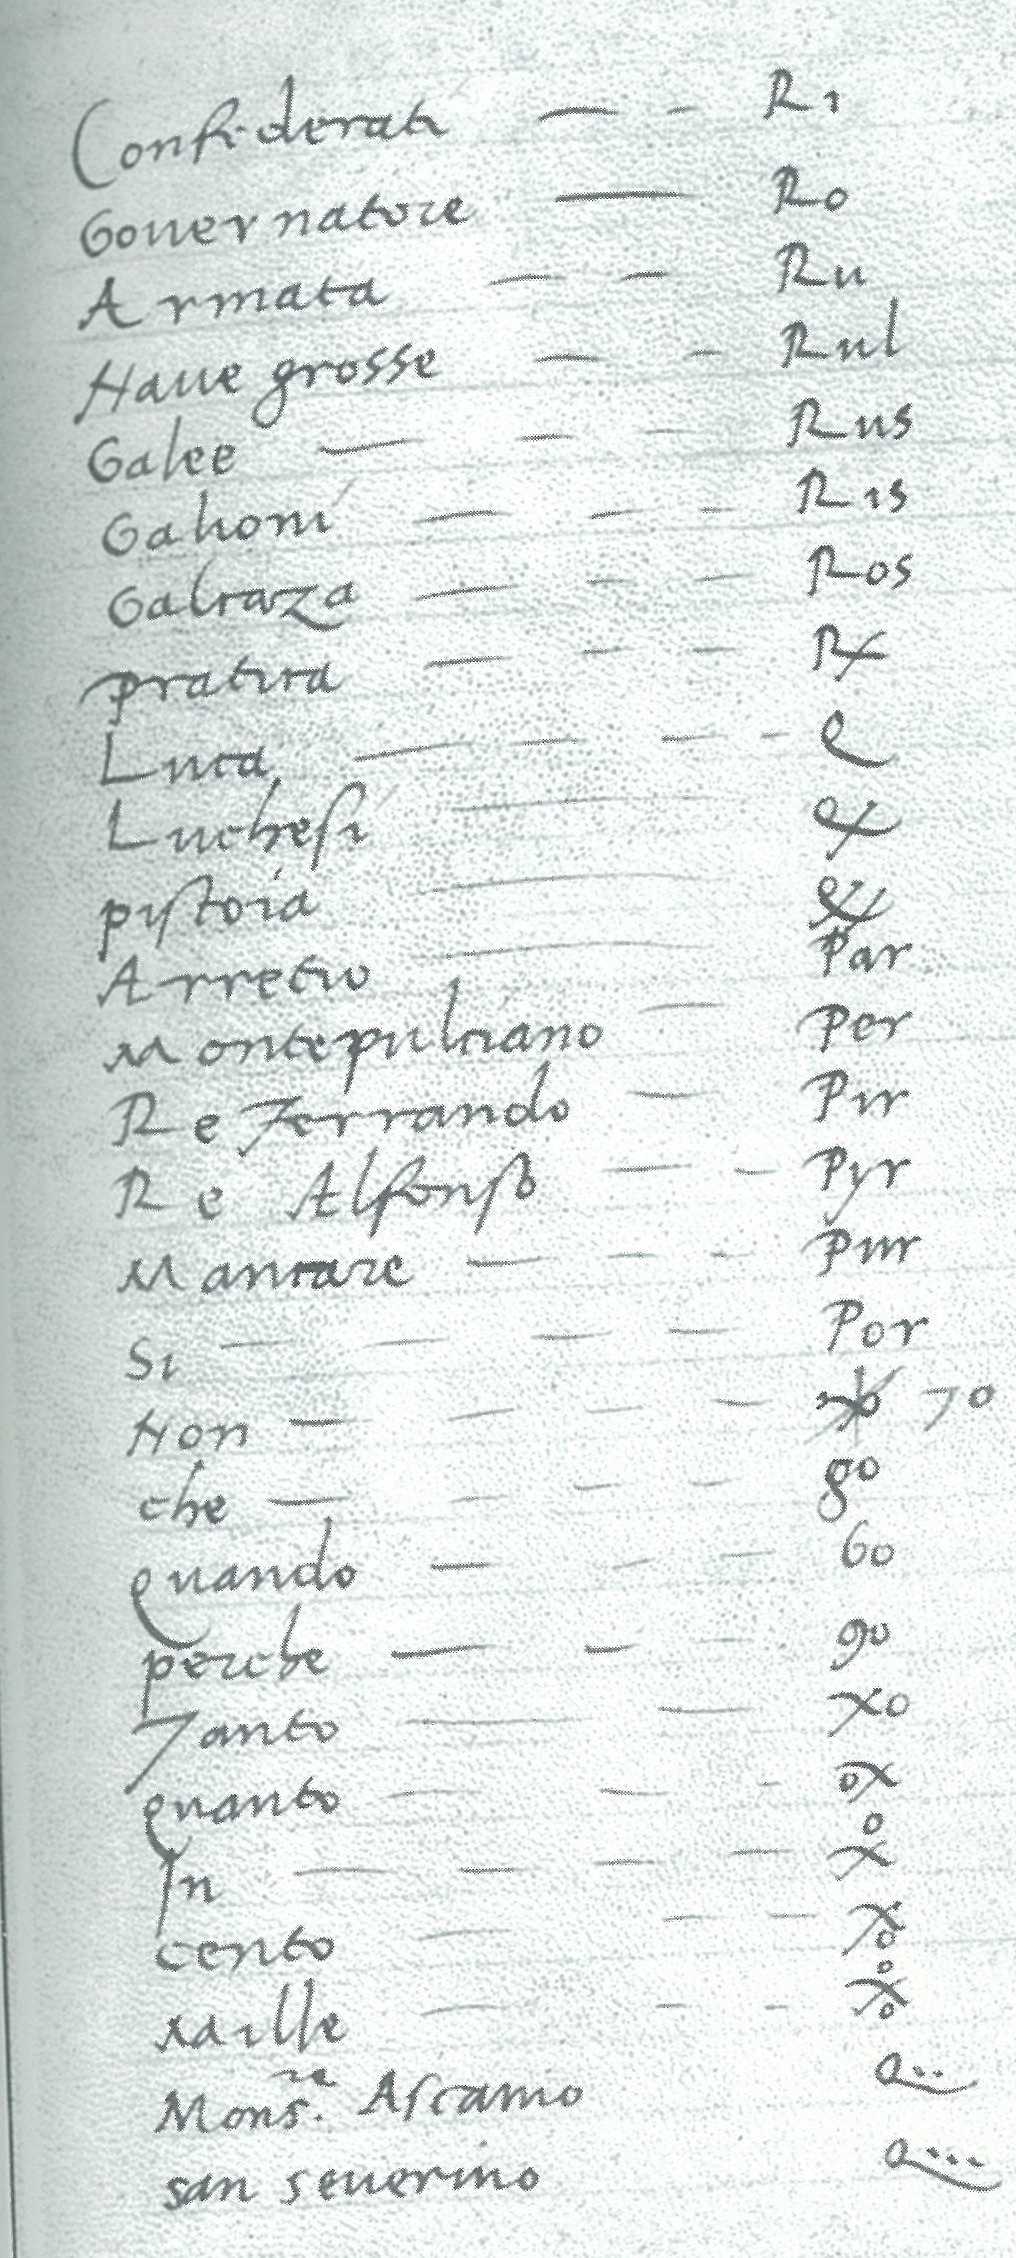 Confederati — - R1
Gouernatore — Ro
Armata — - Ru
Naue grosse — - Rul
Galee — - - Rus
Galioni — - - R1s
Galeaza — - - Ros
pratica — - - Rx
Luca — - - -
Luchesi —
pistoia —
Arretio — Par
Montepulciano — Per
Re Ferrando — Pir
Re Alfonso — - Pyr
Mancare — - - Pur
Si — - - - Por
Non — - - - 70
che — - - - 80
quando — - - 60
perche — - - 90
Tanto — - xo
quanto — - - ox
In — - - -
cento — - -
Mille — - -
Mons.re Ascanio
san seuerino